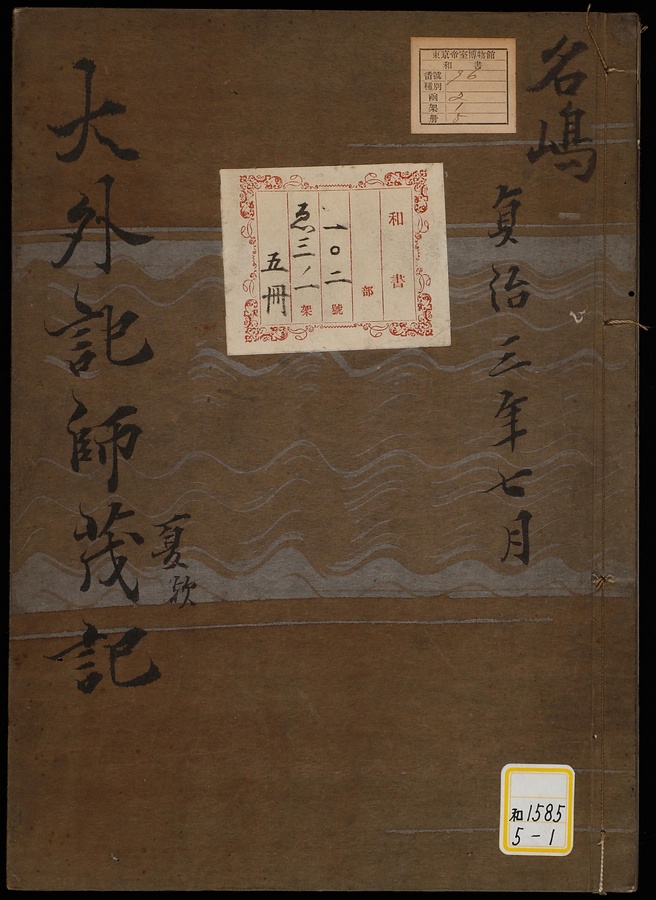 名嶋
貞治三年七月
大外記師茂記
夏欤
東京帝室博物館
和書
番號 76
種別
函 2
架 1
冊 5
和書
部
一〇二號
ゑ三ノ一架
五冊
和1585
5-1